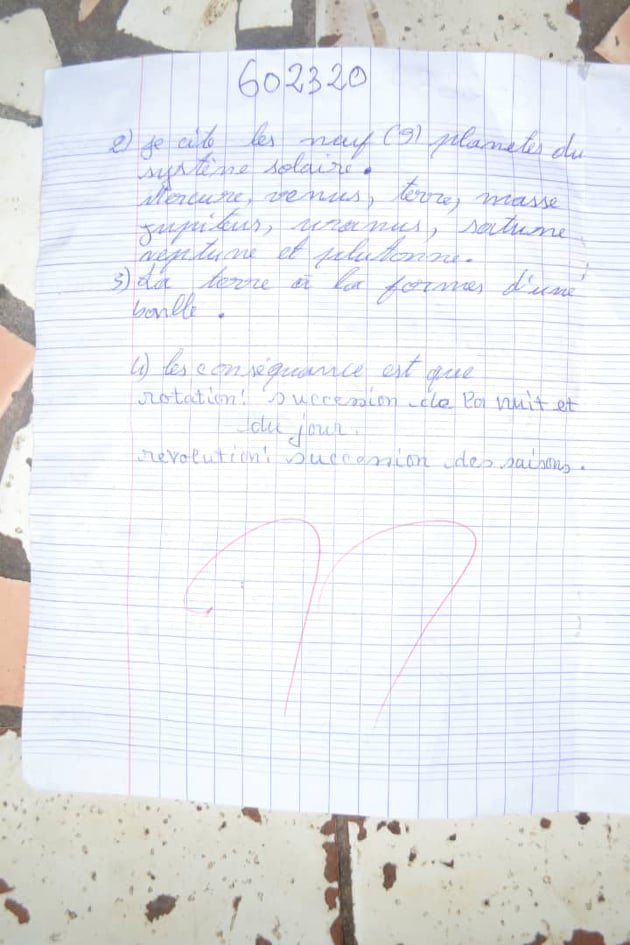 602320
2) je cite les neuf (9) planetes du
système solaire.
Mercure, venus, terre, masse
jupiteus, uranus, satune
neptune et plutonne.
3) La terre à la formes d'une
boulle.
4) les conséquance est que
rotation: succession de la nuit et
du jour.
revolution: succession des saisons.